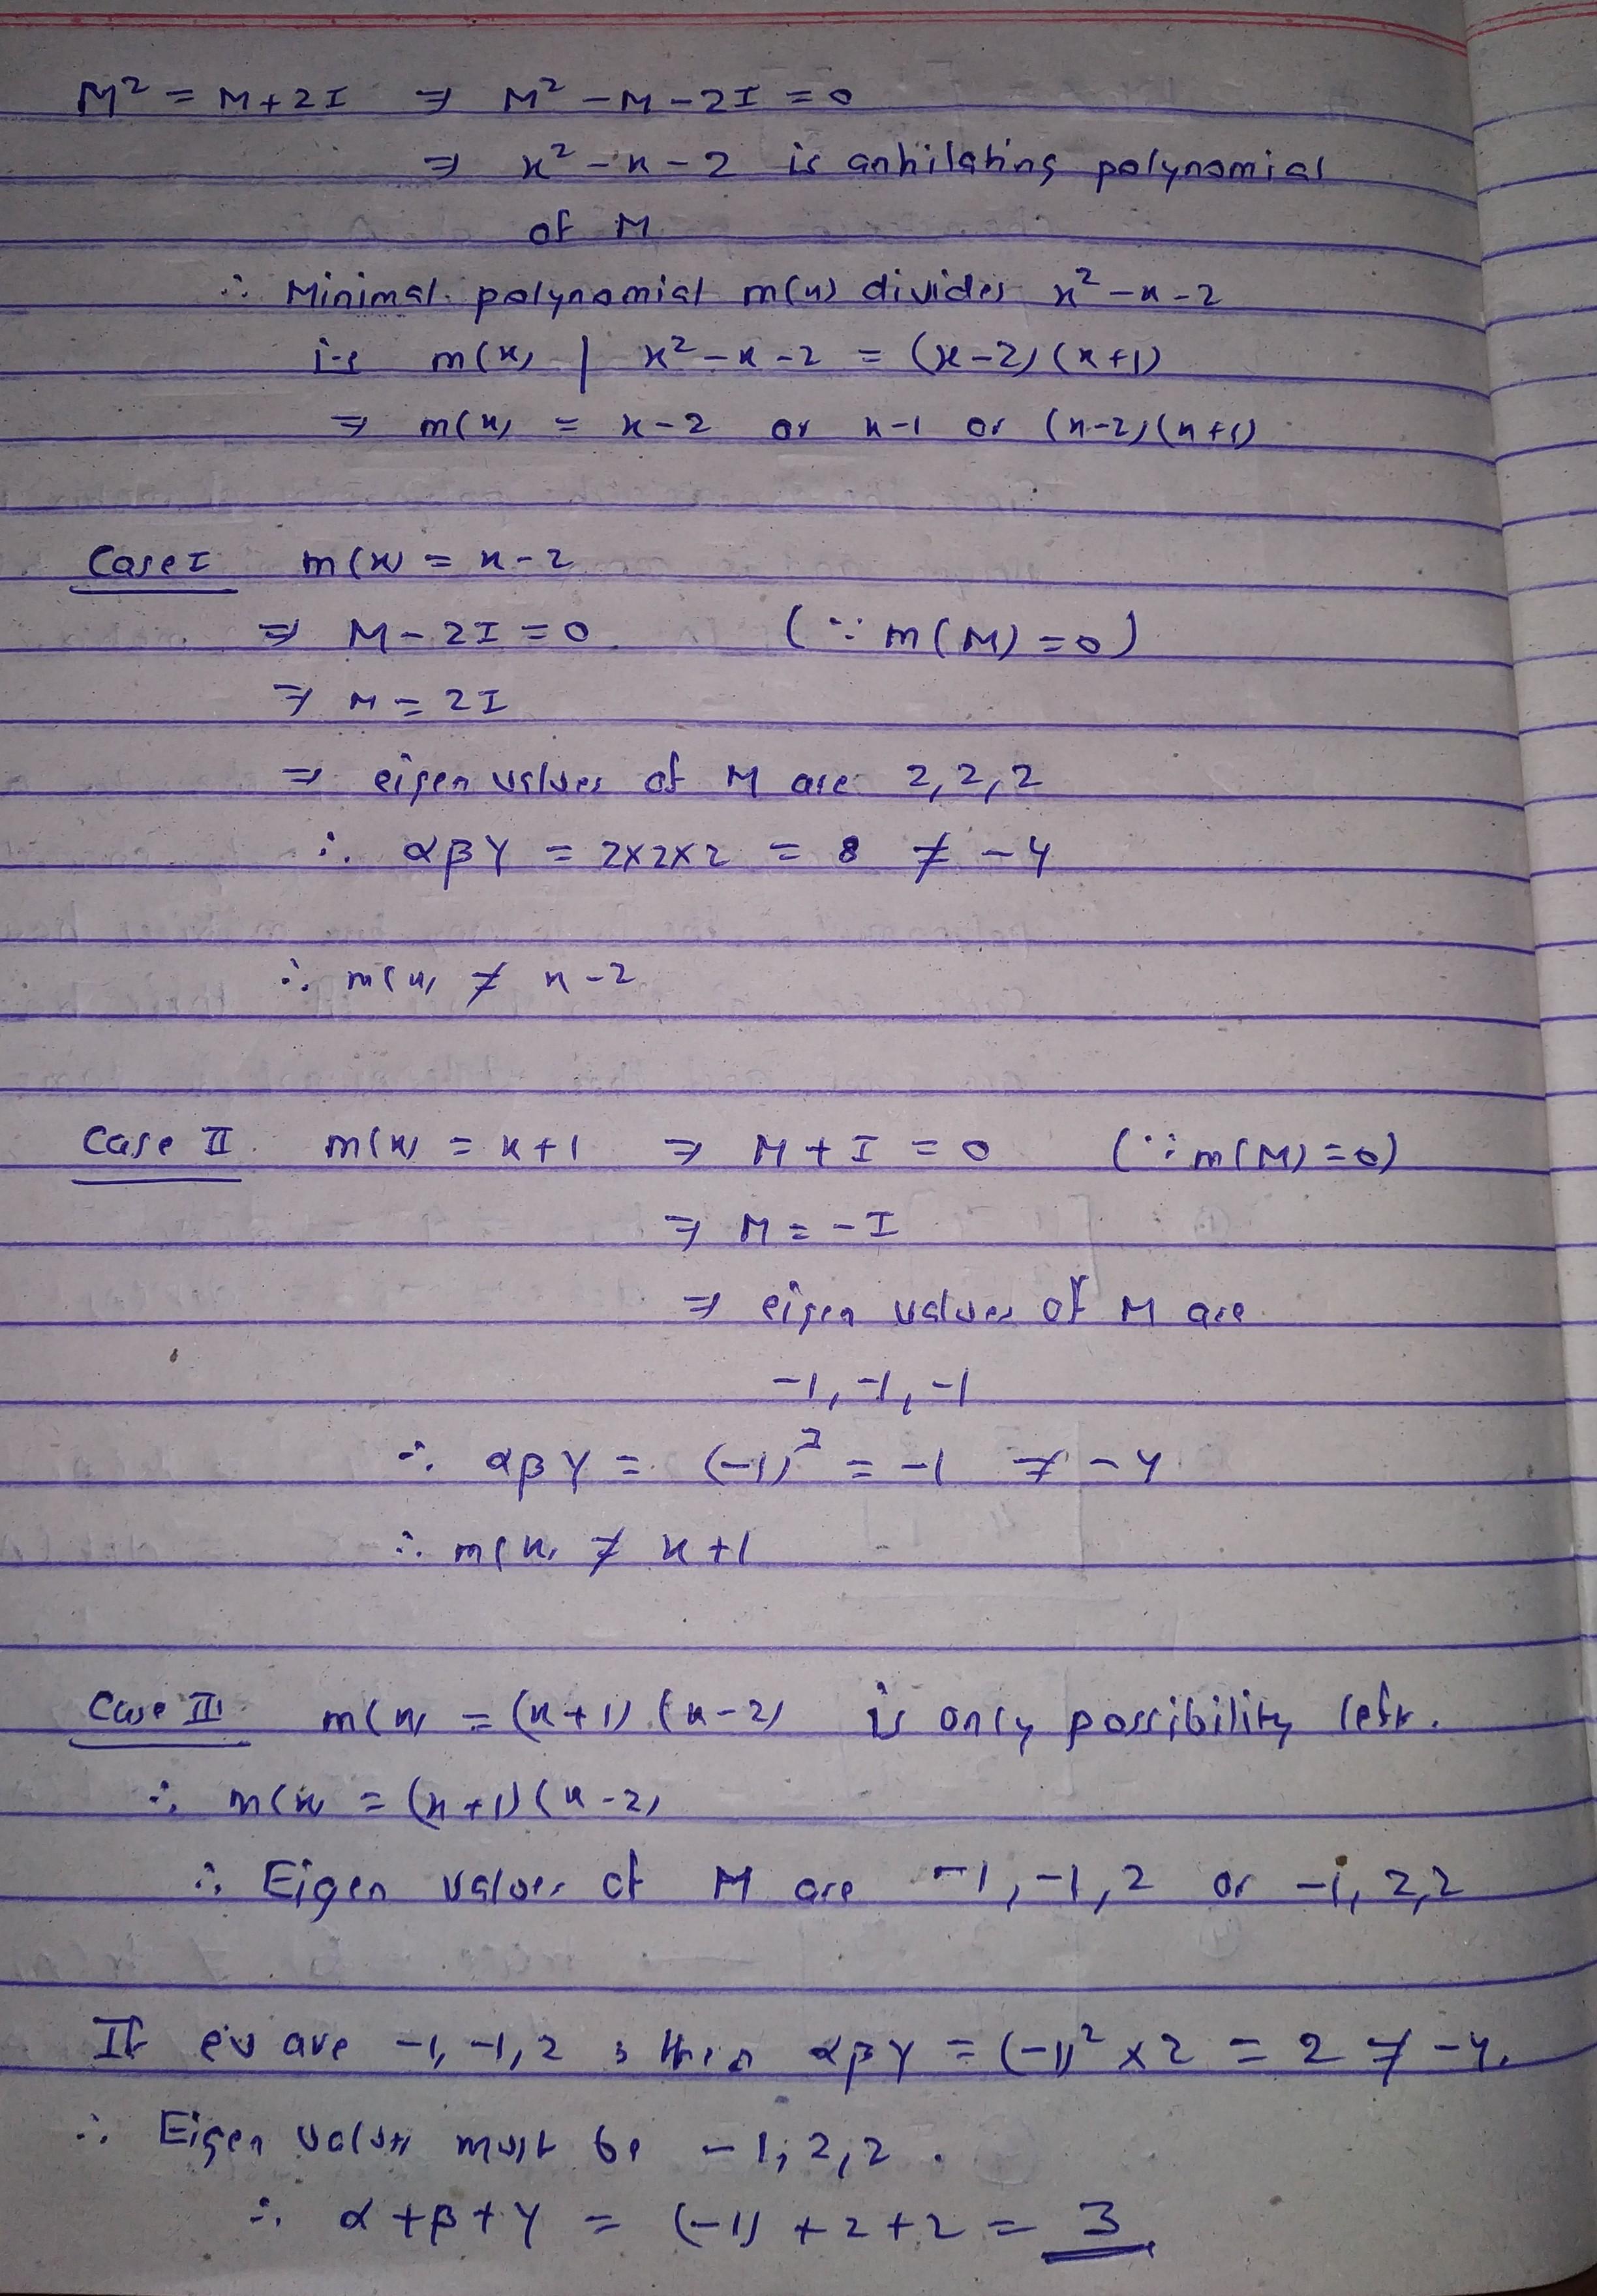 M² = M+2I ⇒ M² - M - 2I = 0
⇒ x² - x - 2 is anhilating polynomial
of M
∴ Minimal polynomial m(x) divides x² - x - 2
i.e m(x) | x² - x - 2 = (x-2)(x+1)
⇒ m(x) = x-2 or x-1 or (x-2)(x+1)
Case I m(x) = x-2
⇒ M - 2I = 0 (∵ m(M) = 0)
⇒ M = 2I
⇒ eigen values of M are 2,2,2
∴ αβγ = 2×2×2 = 8 ≠ -4
∴ m(x) ≠ x-2
Case II m(x) = x+1 ⇒ M + I = 0 (∵ m(M) = 0)
⇒ M = -I
⇒ eigen values of M are
-1, -1, -1
∴ αβγ = (-1)³ = -1 ≠ -4
∴ m(x) ≠ x+1
Case III m(x) = (x+1)(x-2) is only possibility left.
∴ m(x) = (x+1)(x-2)
∴ Eigen values of M are -1, -1, 2 or -1, 2, 2
If ev are -1, -1, 2 , then αβγ = (-1)² × 2 = 2 ≠ -4.
∴ Eigen values must be -1, 2, 2 .
∴ α + β + γ = (-1) + 2 + 2 = 3